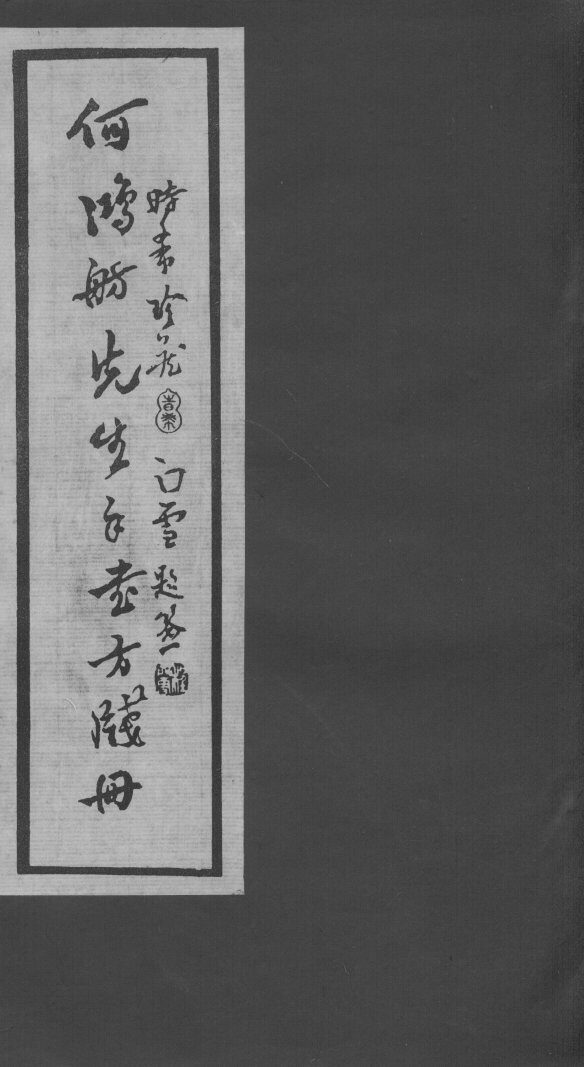 何鴻舫先生手書方牋冊
時希珍藏
白雪題簽